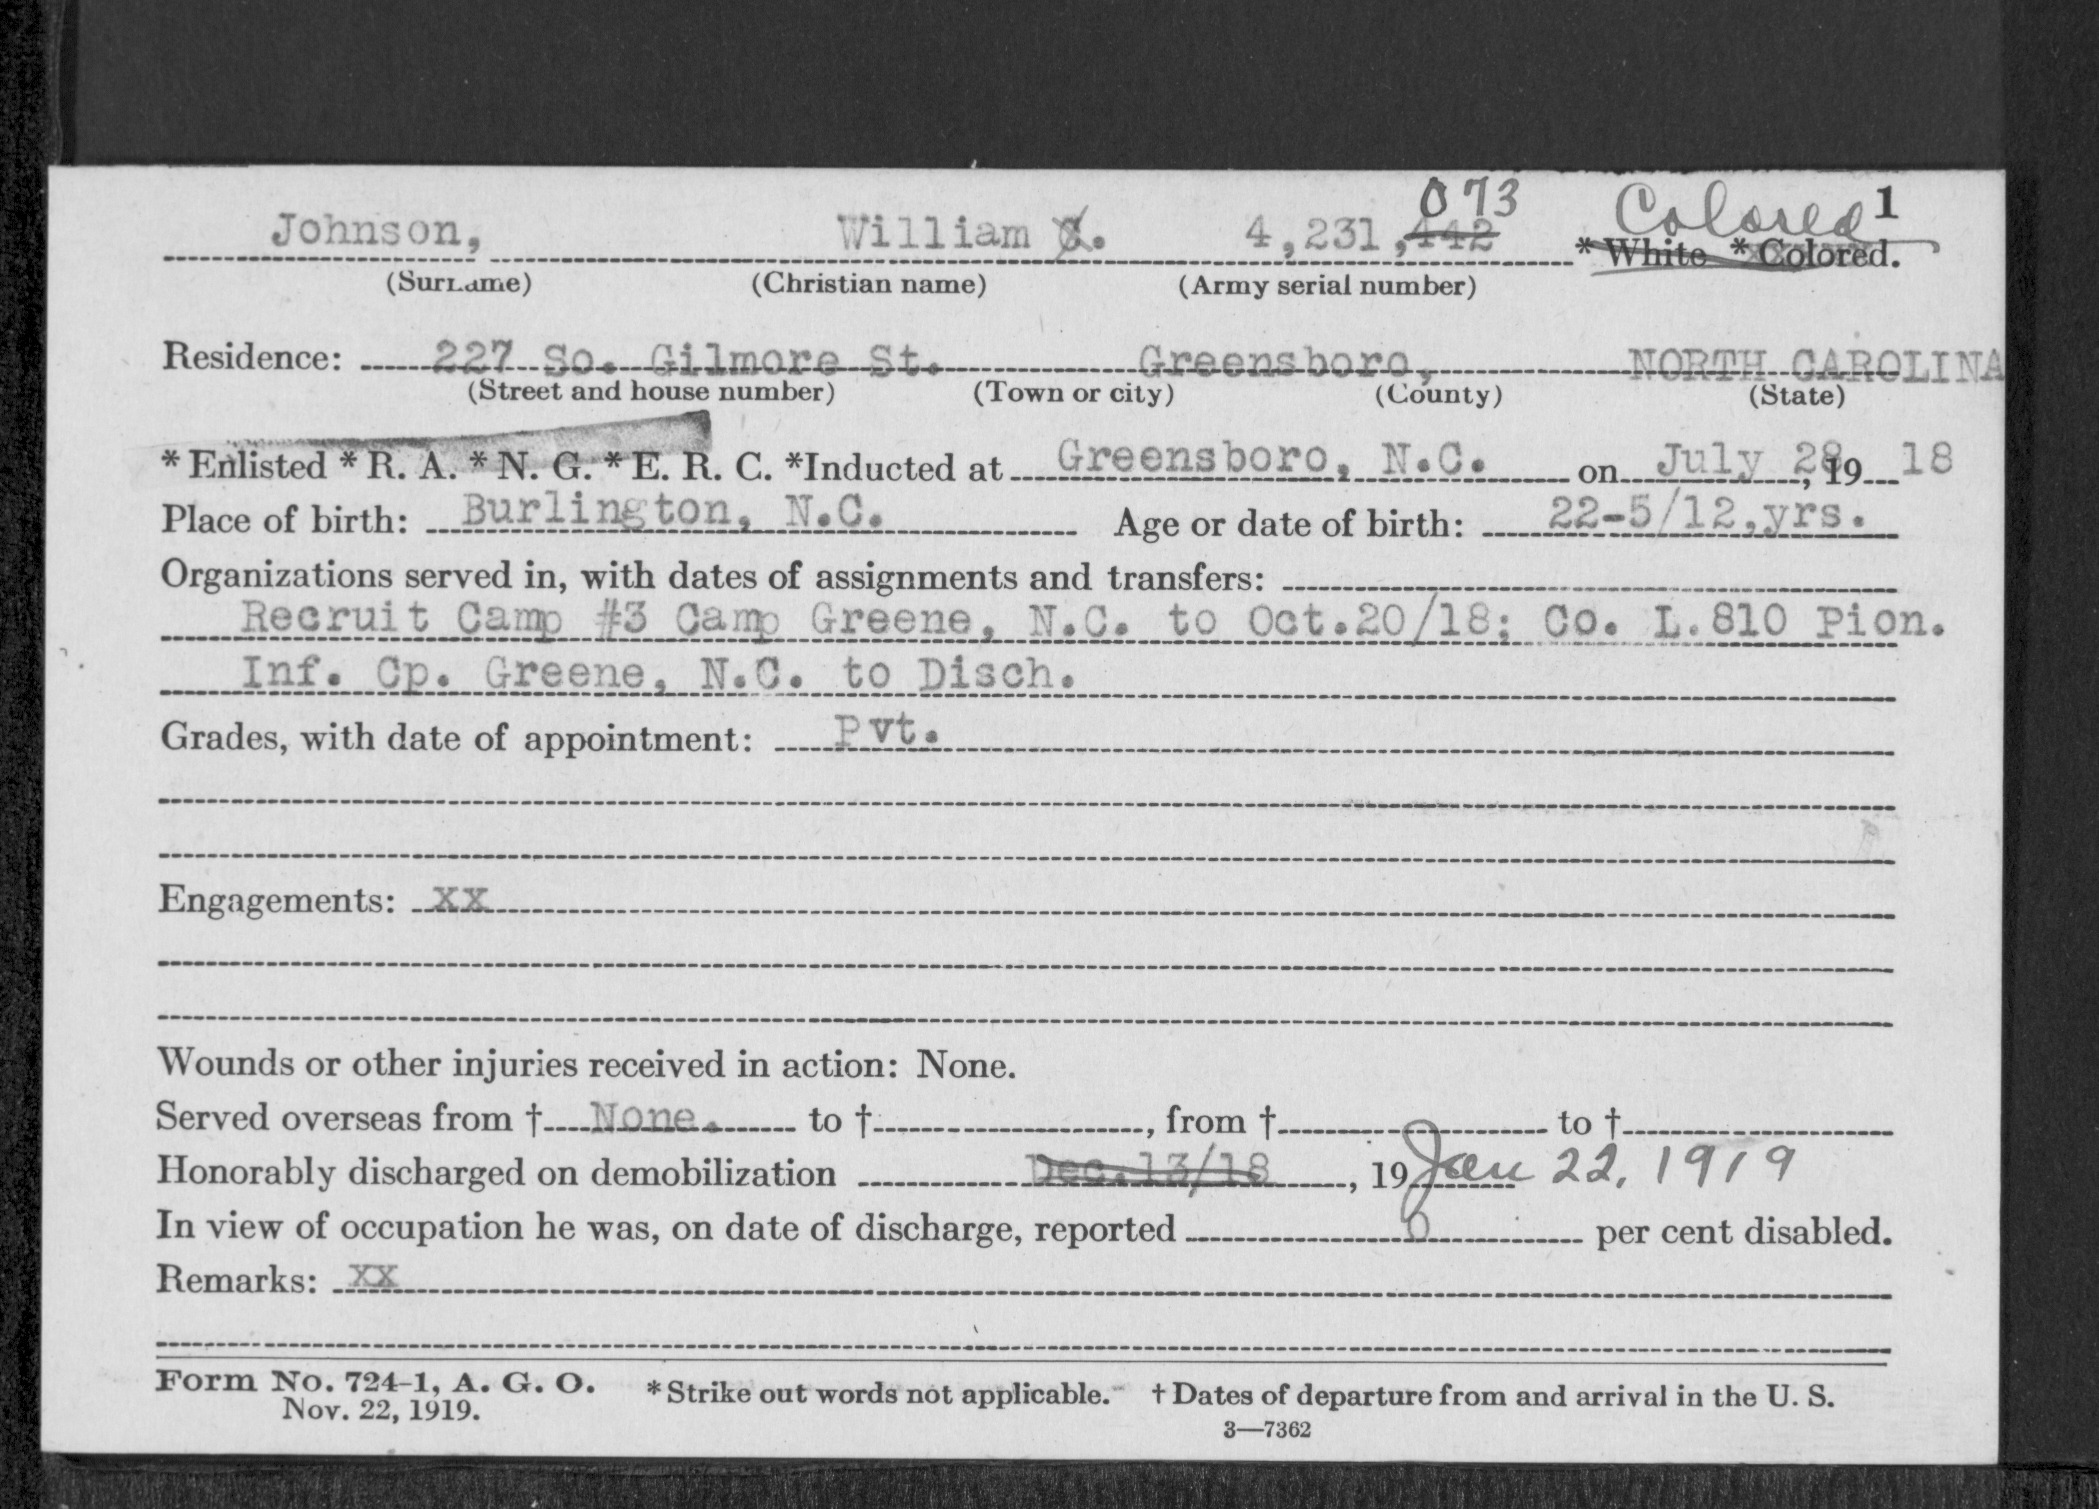 073 Colored 1
Johnson, William 4,231,442 * White * Colored.
(Surname) (Christian name) (Army serial number)
Residence: 227 So. Gilmore St. Greensboro, NORTH CAROLINA
(Street and house number) (Town or city) (County) (State)
* Enlisted * R. A. * N. G. * E. R. C. *Inducted at Greensboro, N.C. on July 28, 19 18
Place of birth: Burlington, N.C. Age or date of birth: 22-5/12,yrs.
Organizations served in, with dates of assignments and transfers:
Recruit Camp #3 Camp Greene, N.C. to Oct.20/18; Co. L.810 Pion.
Inf. Cp. Greene, N.C. to Disch.
Grades, with date of appointment: Pvt.
Engagements: XX
Wounds or other injuries received in action: None.
Served overseas from † None. to † , from † to †
Honorably discharged on demobilization Dec.13/18 , 19 Jan 22, 1919
In view of occupation he was, on date of discharge, reported 0 per cent disabled.
Remarks: XX
Form No. 724-1, A. G. O. * Strike out words not applicable. † Dates of departure from and arrival in the U. S.
Nov. 22, 1919.
3—7362